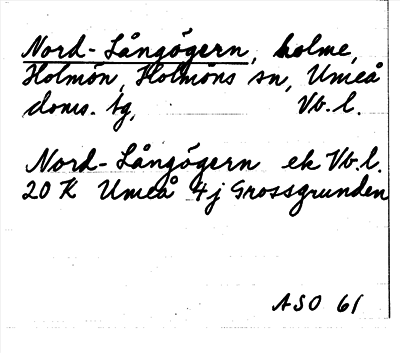 Nord-Långögern, holme,
Holmön, Holmöns sn, Umeå
doms. tg, Vb. l.
Nord-Långögern ek Vb. l.
20 K Umeå 4 j Grossgrunden
ASO 61